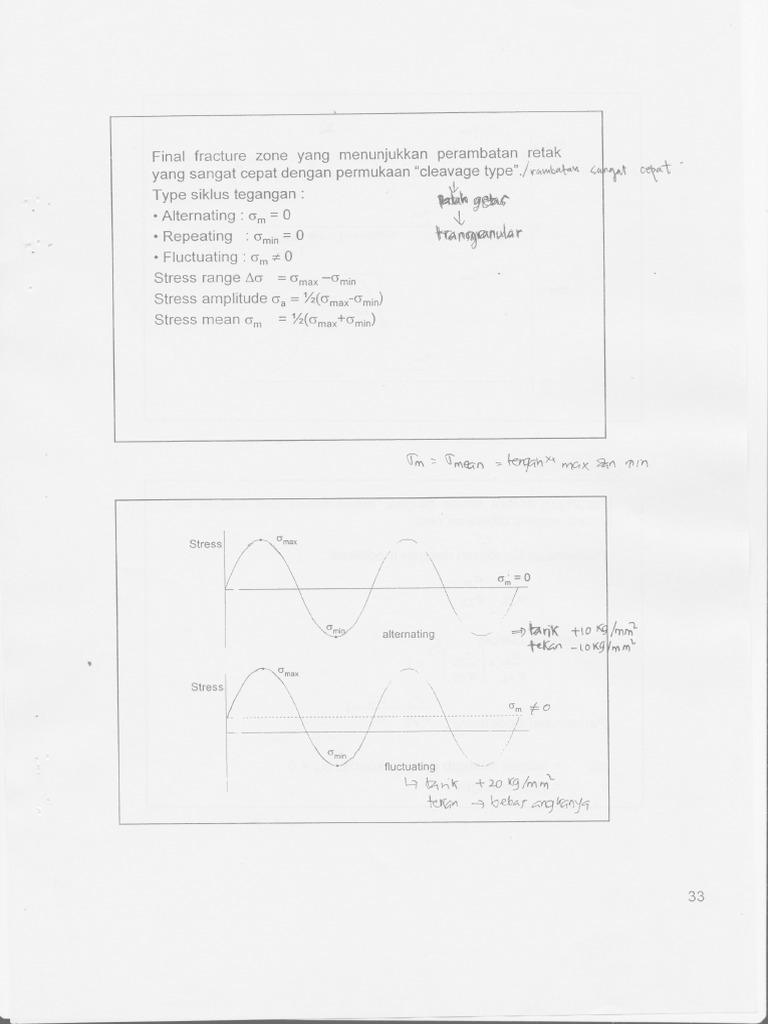 Final fracture zone yang menunjukkan perambatan retak
yang sangat cepat dengan permukaan “cleavage type”./rambatan sangat cepat
Type siklus tegangan :
• Alternating : σm = 0
• Repeating : σmin = 0
transgranular
• Fluctuating : σm ≠ 0
Stress range Δσ = σmax –σmin
Stress amplitude σa = ½(σmax-σmin)
Stress mean σm = ½(σmax+σmin)
σm = σmean = max min
Stress
σmax
σm = 0
σmin
alternating
⇒ tarik +10 kg/mm²
tekan -10 kg/mm²
σmax
Stress
σm ≠ 0
σmin
fluctuating
↳ tarik +20 kg/mm²
tekan → bebas angkanya
33